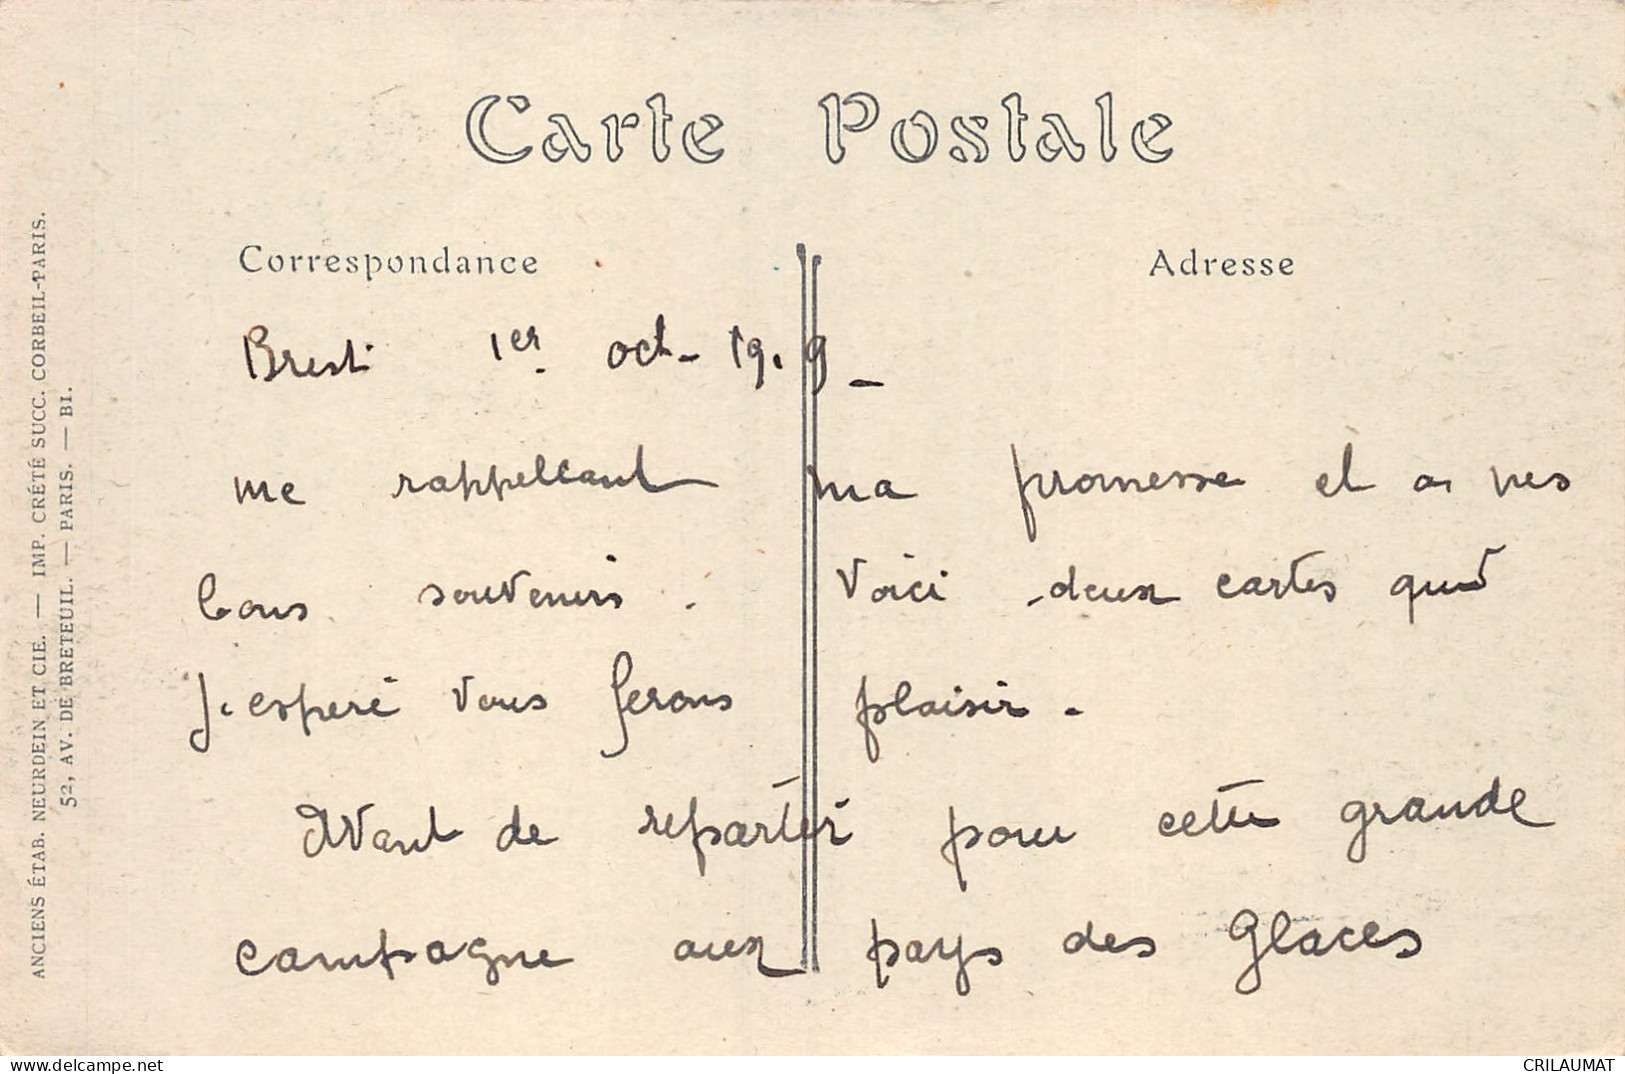 Carte Postale
Correspondance
Adresse
Brest 1er oct- 19.9 _
me rappellant ma promesse et a mes
bons souvenirs. Voici deux cartes qui
j.esperé vous ferons plaisir.
Avant de repartir pour cette grande
campagne aux pays des Glaces
ANCIENS ÉTAB. NEURDEIN ET CIE. — IMP. CRÉTÉ SUCC. CORBEIL-PARIS.
52, AV. DE BRETEUIL. — PARIS. — BI.
www.delcampe.net
CRILAUMAT